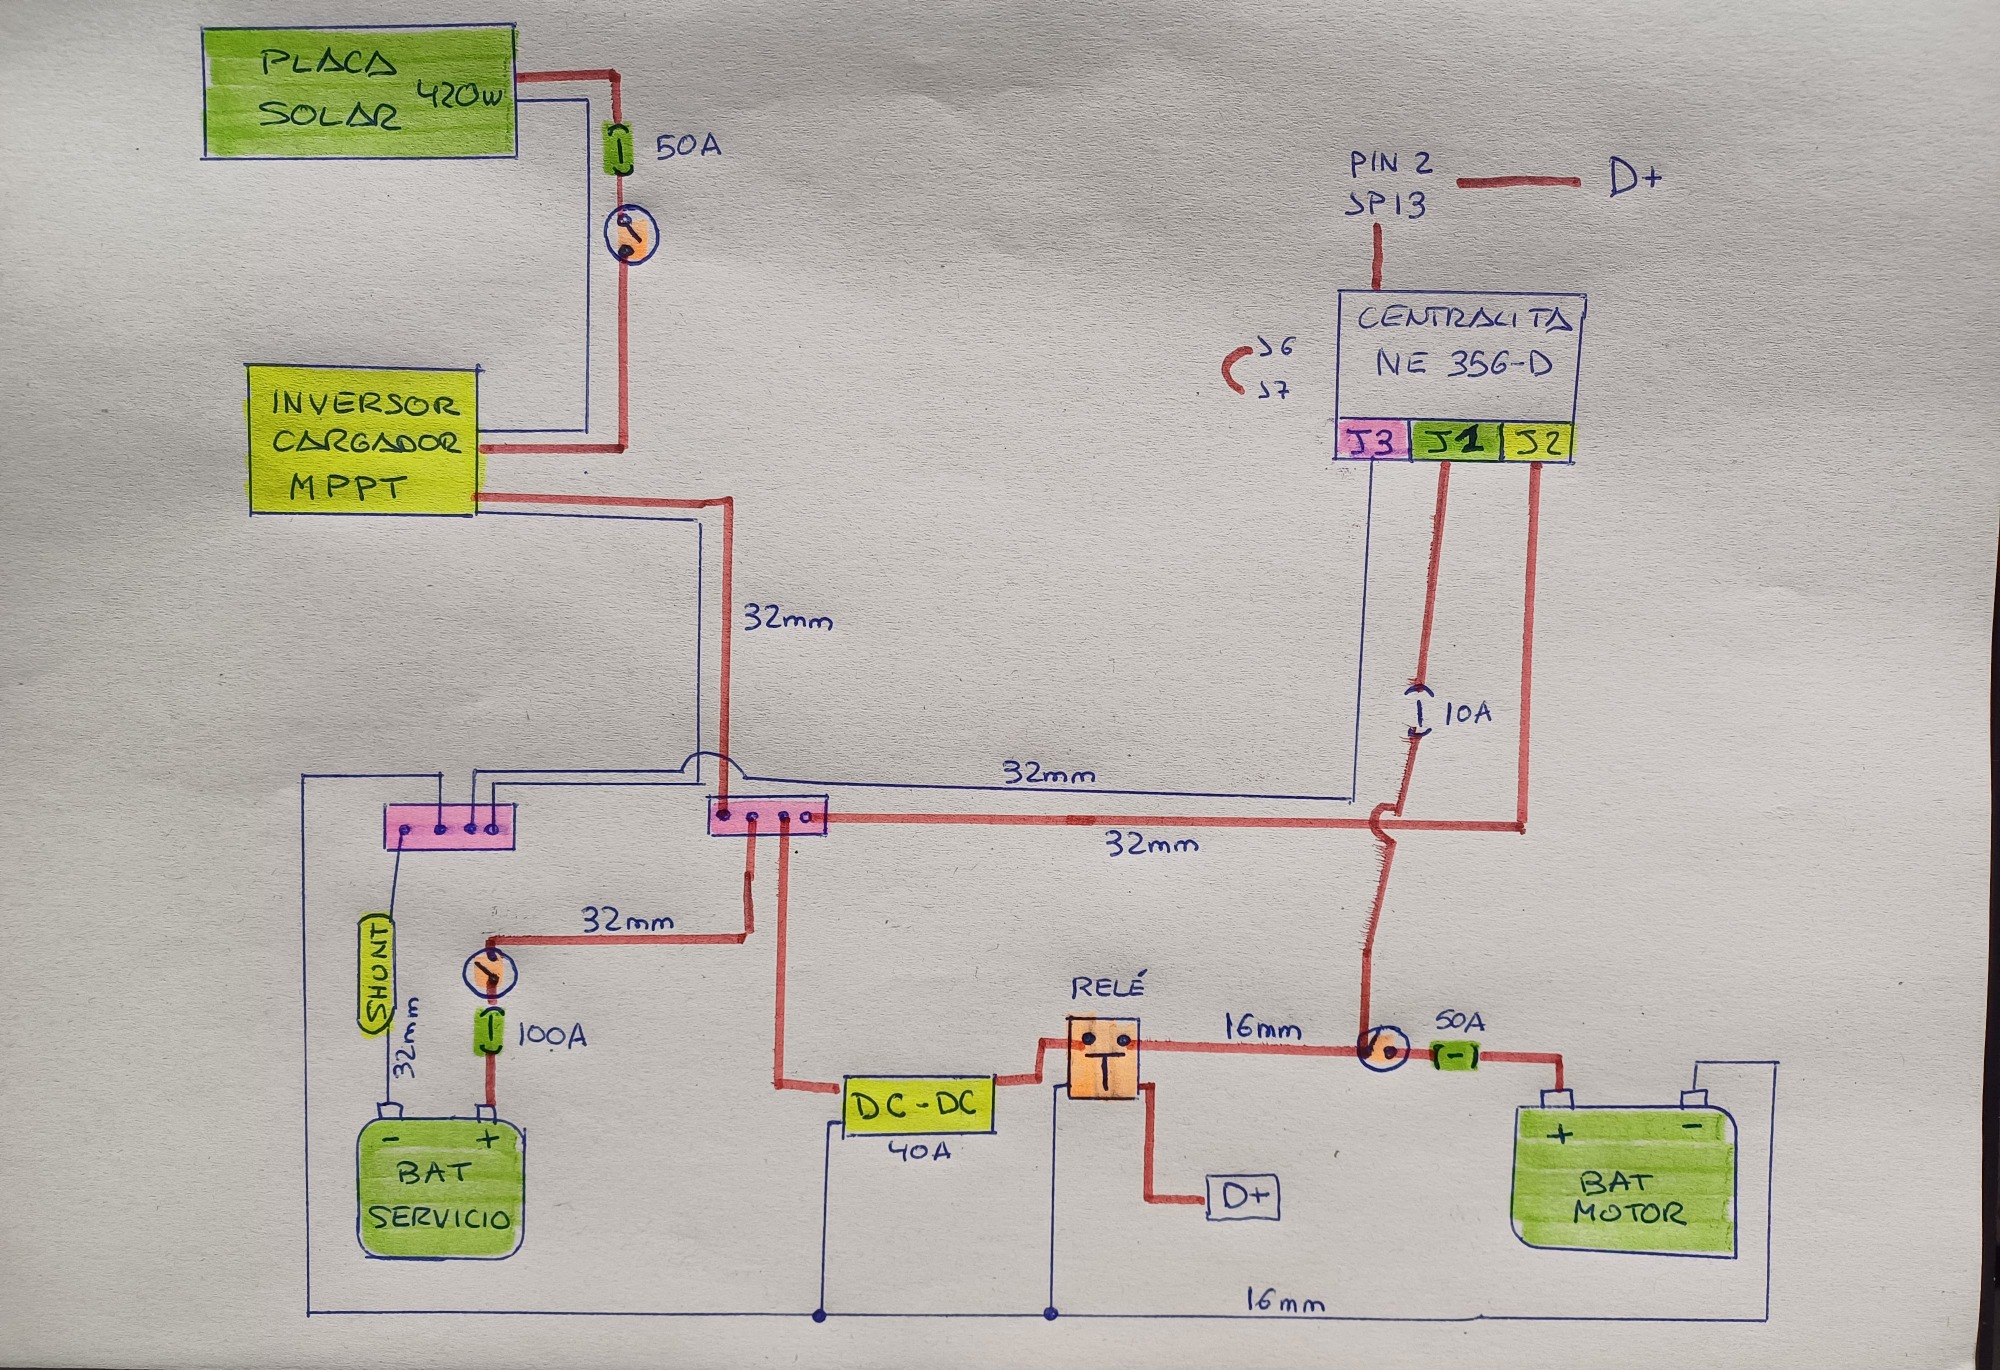 PLACA
SOLAR 420W
50A
PIN 2
JP13
D+
CENTRALITA
NE 356-D
J6
J7
J3 J1 J2
INVERSOR
CARGADOR
MPPT
32mm
10A
32mm
32mm
32mm
SHONT
32mm
100A
RELÉ
T
16mm
50A
DC-DC
40A
D+
- +
BAT
SERVICIO
+ -
BAT
MOTOR
16mm